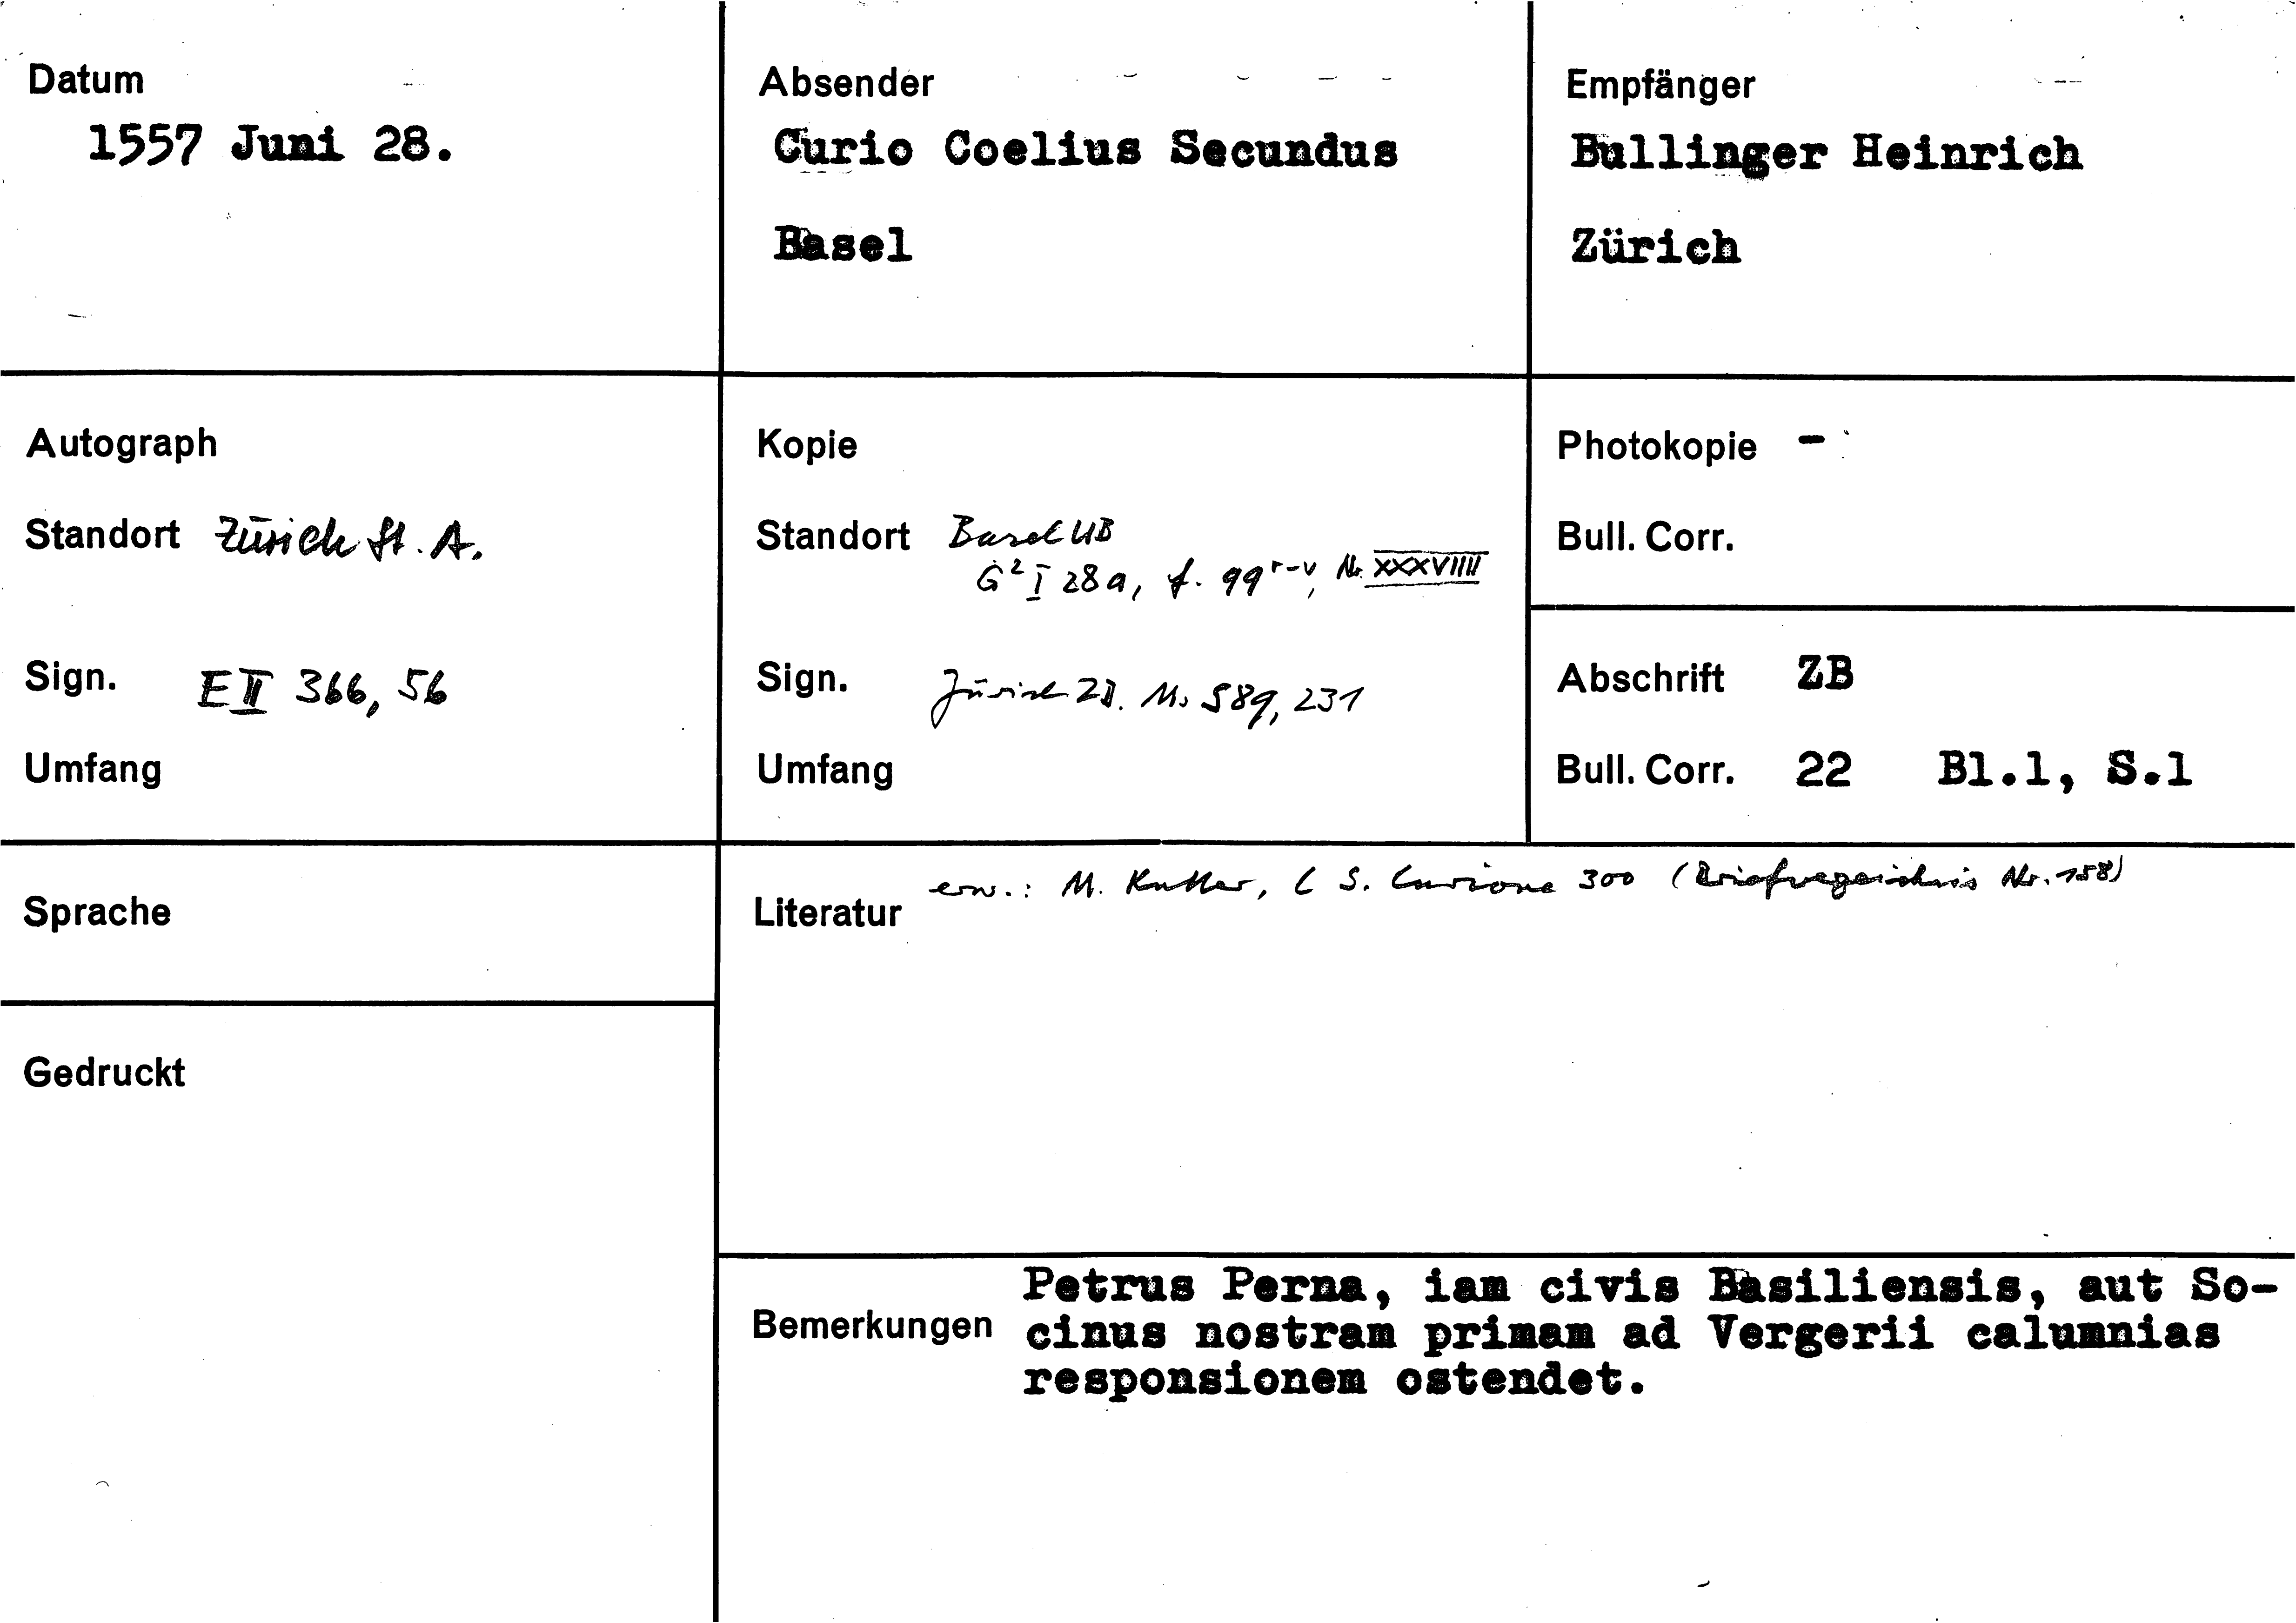 Datum
1557 Juni 28.
Absender
Curio Coelius Secundus
Basel
Empfänger
Bullinger Heinrich
Zürich
Autograph
Standort Zürich St. A.
Sign. E II 366, 56
Umfang
Kopie
Standort Basel UB
G² I 28a, f. 99 r-v, Nr. XXXVIIII
Sign. Zürich ZB. Ms S89, 231
Umfang
Photokopie -
Bull. Corr.
Abschrift ZB
Bull. Corr. 22 Bl.1, S.1
Sprache
Gedruckt
erw.: M. Kutter, C S. Curione 300 (Briefverzeichnis Nr. 158)
Literatur
Petrus Perna, iam civis Basiliensis, aut So-
Bemerkungen cinus nostram primam ad Vergerii calumnias
responsionem ostendet.